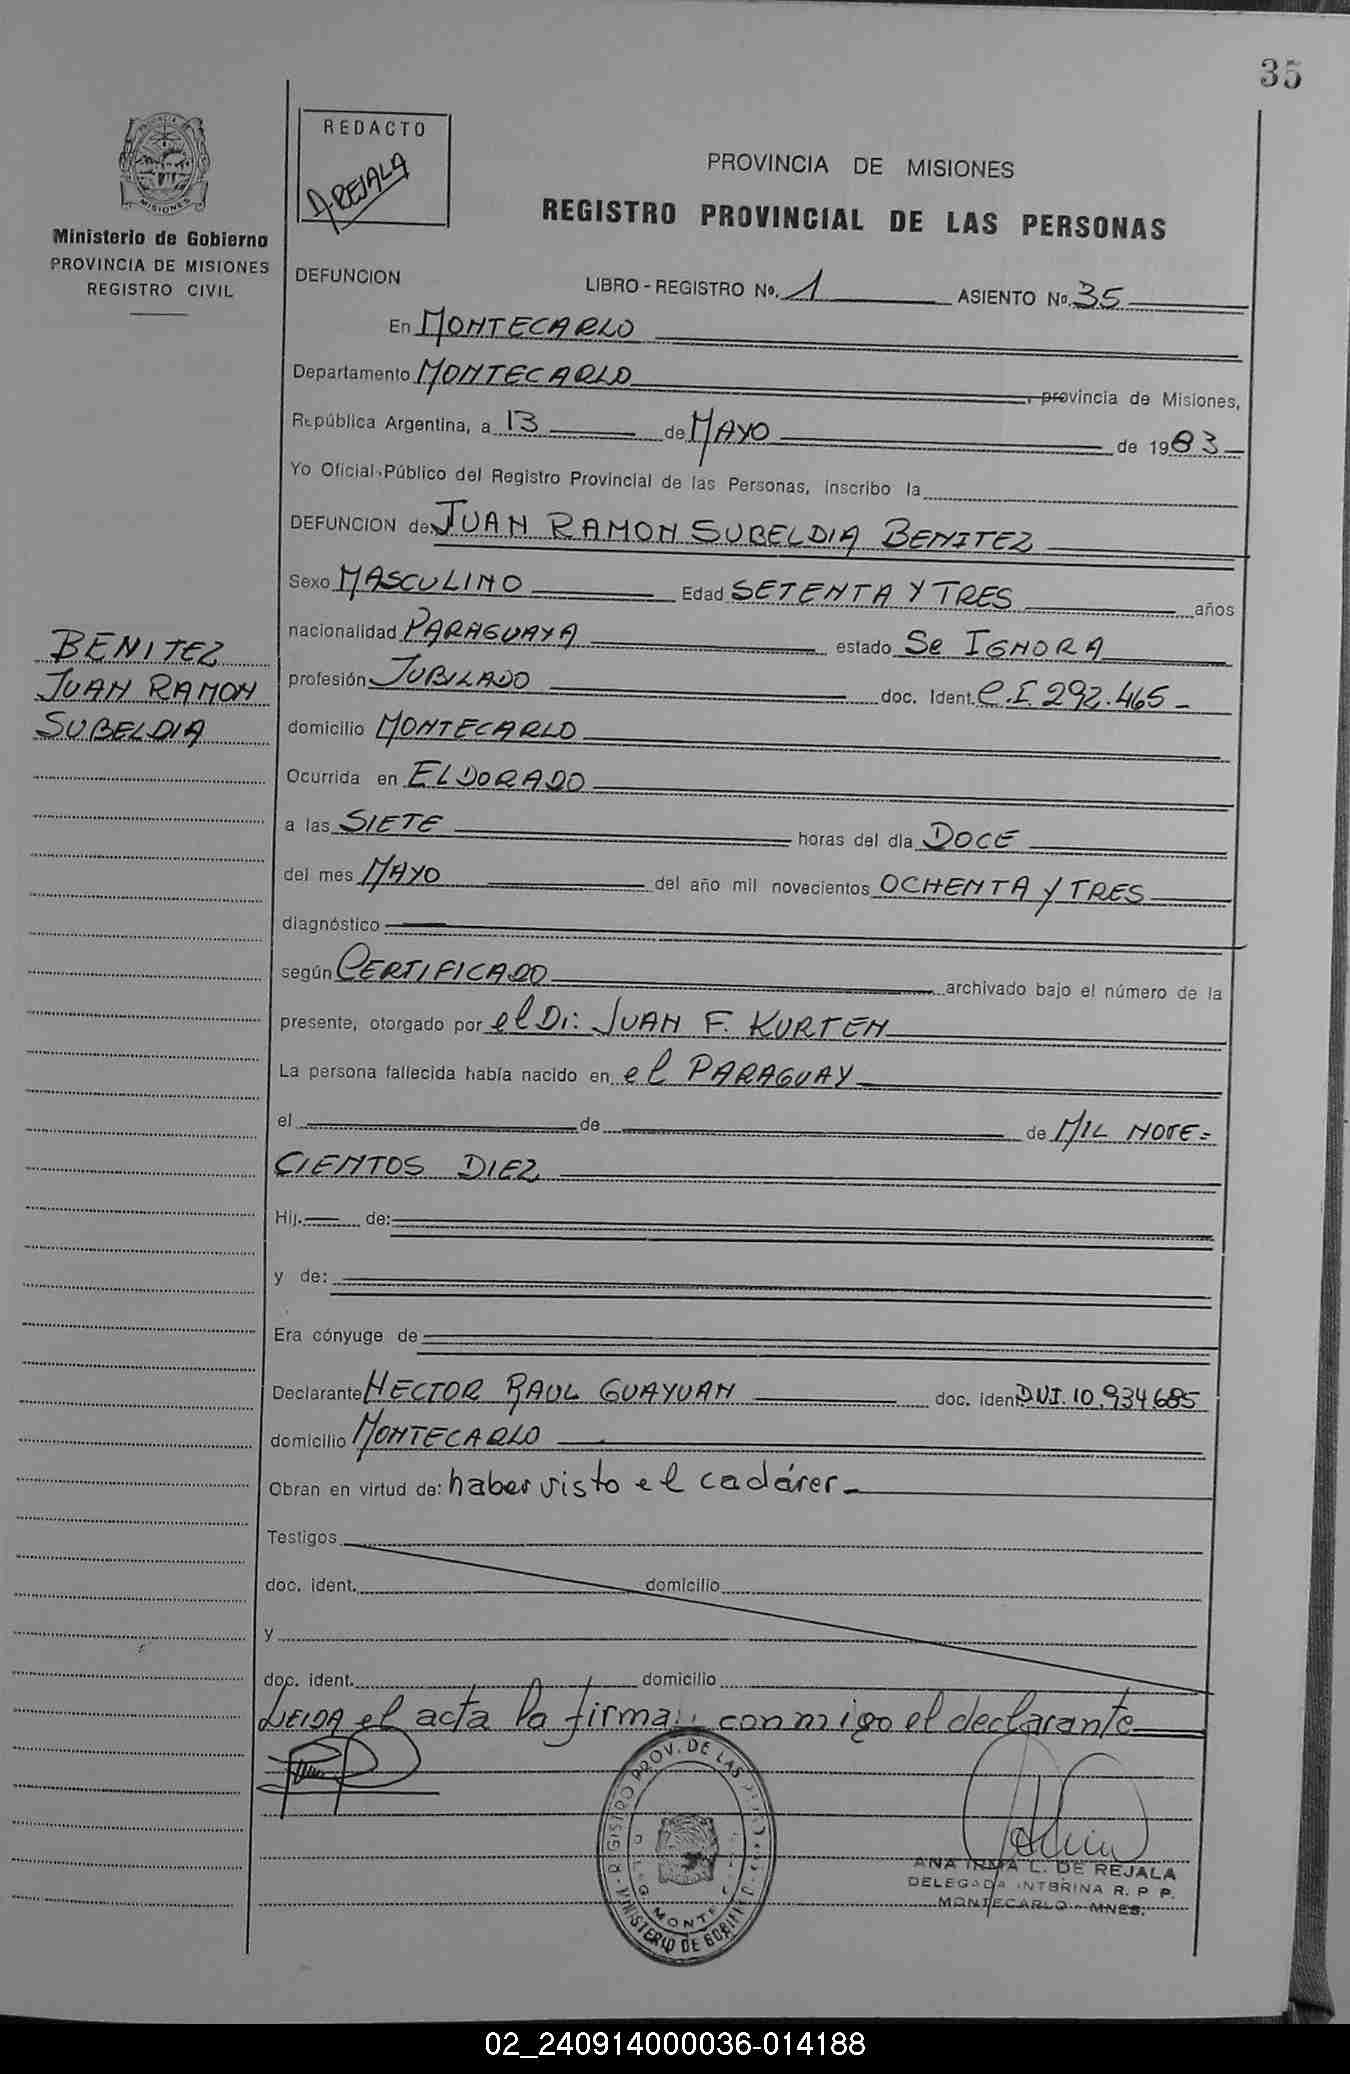 35
REDACTO
A. REJALA
PROVINCIA DE MISIONES
REGISTRO PROVINCIAL DE LAS PERSONAS
MISIONES
Ministerio de Gobierno
PROVINCIA DE MISIONES
REGISTRO CIVIL
DEFUNCION LIBRO - REGISTRO Nº. 1 ASIENTO Nº. 35
En MONTECARLO
Departamento MONTECARLO, provincia de Misiones,
República Argentina, a 13 de MAYO de 1983
Yo Oficial Público del Registro Provincial de las Personas, inscribo la
DEFUNCION de JUAN RAMON SUBELDIA BENITEZ
Sexo MASCULINO Edad SETENTA Y TRES años
nacionalidad PARAGUAYA estado Se IGNORA
BENITEZ
JUAN RAMON
SUBELDIA
profesión JUBILADO doc. Ident. C.I. 292.465 -
domicilio MONTECARLO
Ocurrida en ELDORADO
a las SIETE horas del día DOCE
del mes MAYO del año mil novecientos OCHENTA Y TRES
diagnóstico
según CERTIFICADO archivado bajo el número de la
presente, otorgado por el Dr: JUAN F. KURTEN
La persona fallecida había nacido en el PARAGUAY
el de de MIL NOVE=
CIENTOS DIEZ
Hij. de:
y de:
Era cónyuge de
Declarante HECTOR RAUL GUAYUAN doc. ident D.N.I. 10.934.685
domicilio MONTECARLO
Obran en virtud de: haber visto el cadáver.
Testigos
doc. ident. domicilio
y
doc. ident. domicilio
LEIDA el acta la firma conmigo el declarante
REGISTRO PROV. DE LAS
MONTE
MINISTERIO DE GOBIERNO
ANA IRMA L. DE REJALA
DELEGADA INTERINA R. P. P.
MONTECARLO - MNES.
02_240914000036-014188